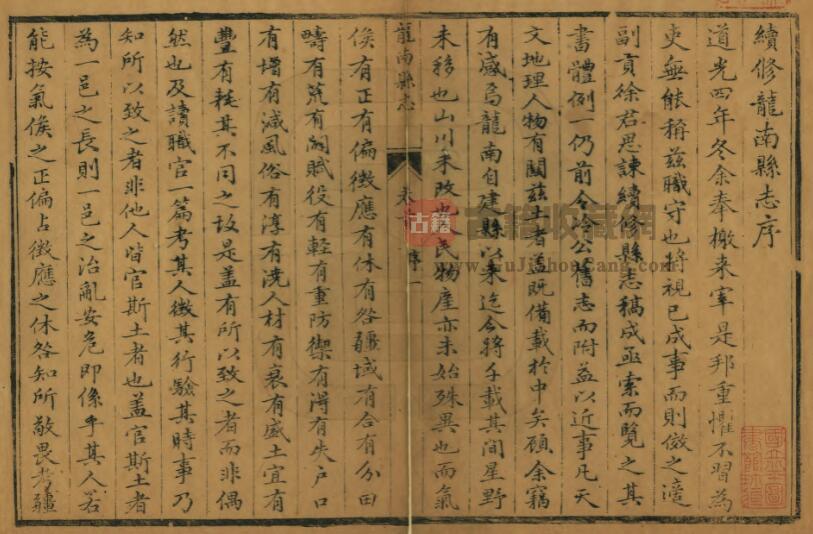 續修龍南縣志序
道光四年冬余奉檄来宰是邦重懼不習為
吏無能稱兹職守也將視已成事而則傚之適
副貢徐君思諫續修縣志稿成亟索而覽之其
書體例一仍前令冷公舊志而附益以近事凡天
文地理人物有關兹土者蓋既備載於中矣顧余竊
有感焉龍南自建縣以来迄今將千載其間星野
未移也山川未改也人民物産亦未始殊異也而氣
龍南縣志
卷 序 一
候有正有偏徵應有休有咎疆域有合有分田
疇有荒有闢賦役有輕有重防禦有得有失户口
有增有減風俗有淳有澆人材有衰有盛土宜有
豐有耗其不同之故是蓋有所以致之者而非偶
然也及讀職官一篇考其人徵其行驗其時事乃
知所以致之者非他人皆官斯土者也蓋官斯土者
為一邑之長則一邑之治亂安危即係乎其人若
能按氣候之正偏占徵應之休咎知所敬畏考疆
古籍
古籍收藏网
www.GuJiShouCang.com